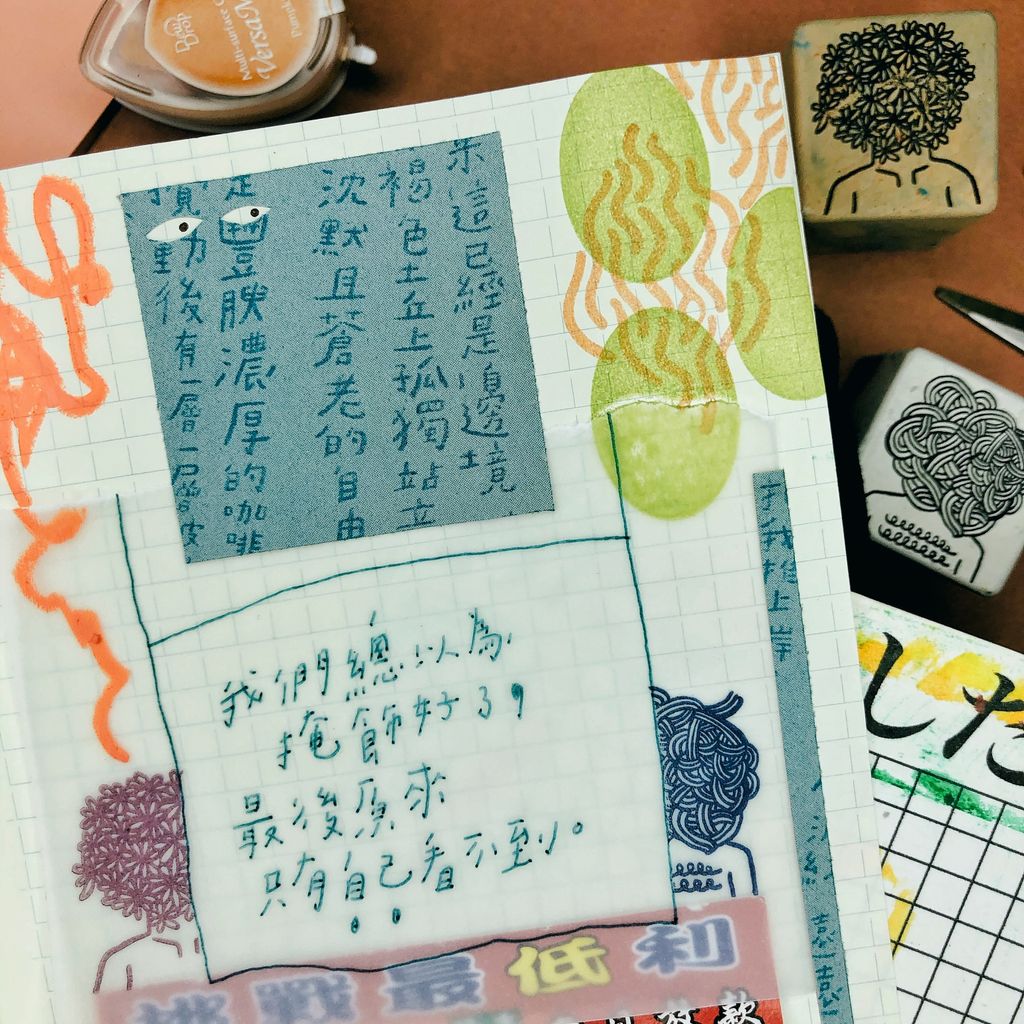 VersaColor
Multi-surface
這已經是邊境
褐色土丘上孤獨站立
沈默且蒼老的自由
豐腴濃厚的咖啡
動後有一層一層皮
于我抱上岸
我們總以為
掩飾好了，
最後原來
只有自己看不到。
した
挑戰最低利
款